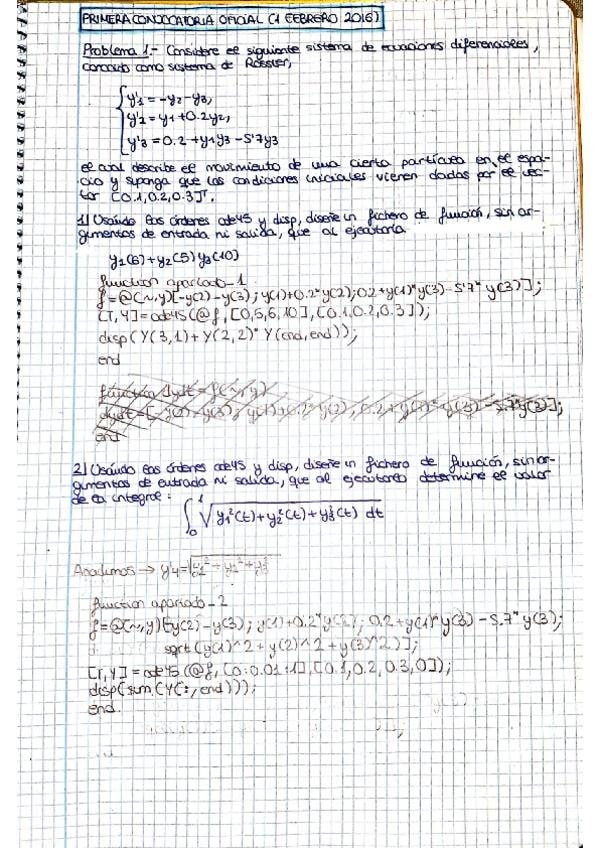 PRIMERA CONVOCATORIA OFICIAL (1 FEBRERO 2016)
Problema 1.- Considere el siguiente sistema de ecuaciones diferenciales,
conocido como sistema de Rössler,
y'1 = -y2 - y3,
y'2 = y1 + 0.2y2,
y'3 = 0.2 + y1y3 - 5'7y3
el cual describe el movimiento de una cierta partícula en el espa-
cio y suponga que las condiciones iniciales vienen dadas por el vec-
tor [0.1, 0.2, 0.3]ᵀ.
1) Usando las órdenes ode45 y disp, diseñe un fichero de función, sin ar-
gumentos de entrada ni salida, que al ejecutarlo
y1(6) + y2(5) y3(10)
function apartado_1
f=@(~,y)[-y(2)-y(3); y(1)+0.2*y(2); 0.2+y(1)*y(3)-5'7*y(3)];
[T,Y]=ode45(@f,[0,5,6,10],[0.1,0.2,0.3]);
disp(Y(3,1)+Y(2,2)*Y(end,end));
end
function dydt=f(~,y)
dydt=[-y(2)-y(3); y(1)+0.2*y(2); 0.2+y(1)*y(3)-5.7*y(3)];
end
2) Usando las órdenes ode45 y disp, diseñe un fichero de función, sin ar-
gumentos de entrada ni salida, que al ejecutarlo determine el valor
de la integral:
∫₀¹ √(y₁²(t)+y₂²(t)+y₃²(t) dt
Añadimos → y'4=√(y1²+y2²+y3²
function apartado_2
f=@(~,y)[-y(2)-y(3); y(1)+0.2*y(2); 0.2+y(1)*y(3)-5.7*y(3);
sqrt(y(1)^2+y(2)^2+y(3)^2)];
[T,Y]=ode45(@f,[0:0.01:1],[0.1,0.2,0.3,0]);
disp(sum(Y(:,end)));
end.